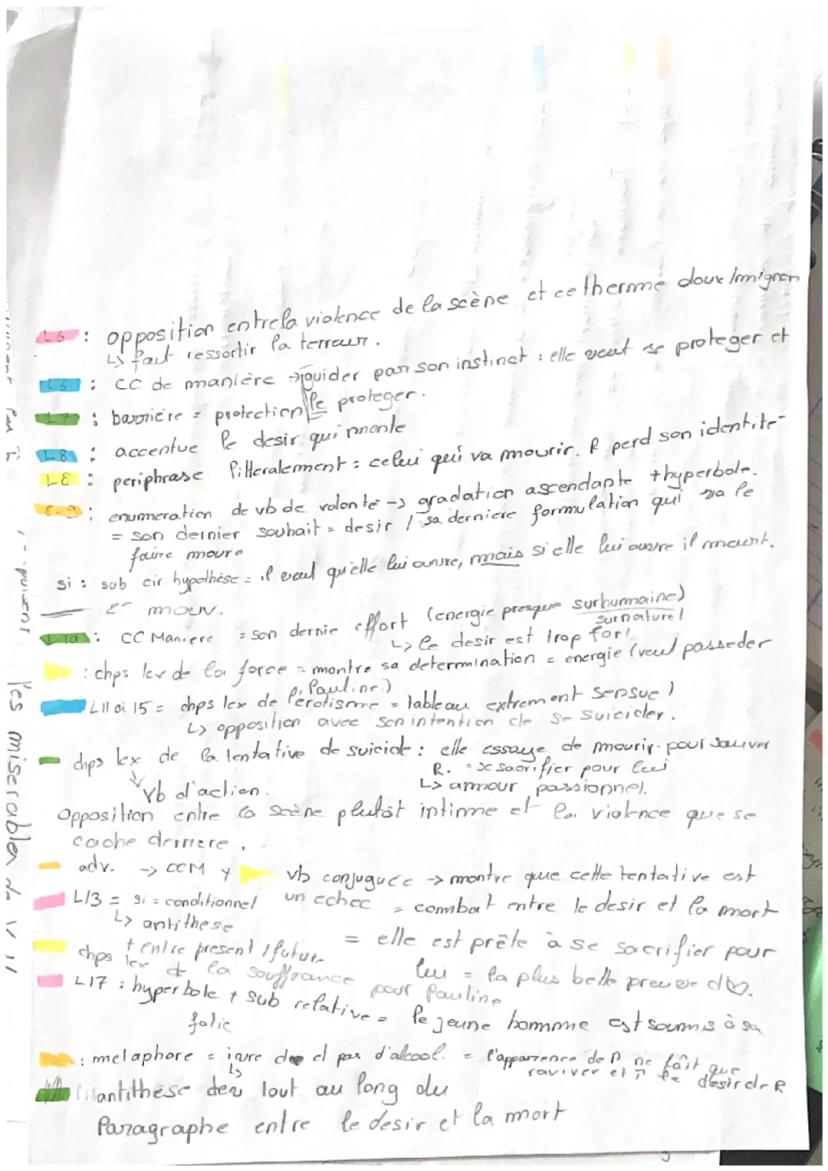 L6 : opposition entre la violence de la scène et ce therme doux /mignon
↳ fait ressortir la terreur.
L6 : CC de manière → guider par son instinct : elle veut se proteger et
le proteger.
L7 : barrière = protection
L8 : accentue le desir qui monte
L8 : periphrase litteralement = celui qui va mourir. R perd son identité
8-9 : enumeration de vb de volonté → gradation ascendante + hyperbole.
= son dernier souhait = desir / sa derniere formulation qui va le
faire mourir
si : sub cir hypothèse = il veut qu'elle lui ouvre, mais si elle lui ouvre il meurt.
2e mouv.
L10 : CC Maniere = son dernie effort (energie presque surhumaine)
surnaturel
↳ le desir est trop fort
: chps lex de la force = montre sa determination = energie (veut posseder
Pauline)
L11 à 15 = chps lex de l'érotisme = tableau extrement sensuel
↳ opposition avec son intention de se suicider.
chps lex de la tentative de suicide : elle essaye de mourir pour sauver
R. = se sacrifier pour lui
↳ vb d'action. ↳ amour passionnel.
Opposition entre la scène plutôt intimme et la violence que se
cache derriere.
adv. → CCM vb conjuguée → montre que cette tentative est
un echec
L13 = si = conditionnel = combat entre le desir et la mort
↳ antithese
+ entre present / futur = elle est prête à se sacrifier pour
chps lex de la souffrance lui = la plus belle preuve d♡.
pour Pauline
L17 : hyperbole + sub relative = le jeune homme est soumis à sa
folie
: metaphore = ivre de et pas d'alcool. = l'apparence de P ne fait que
raviver le desir de R
antithèse tout au long du
Paragraphe entre le desir et la mort
les miserables de V